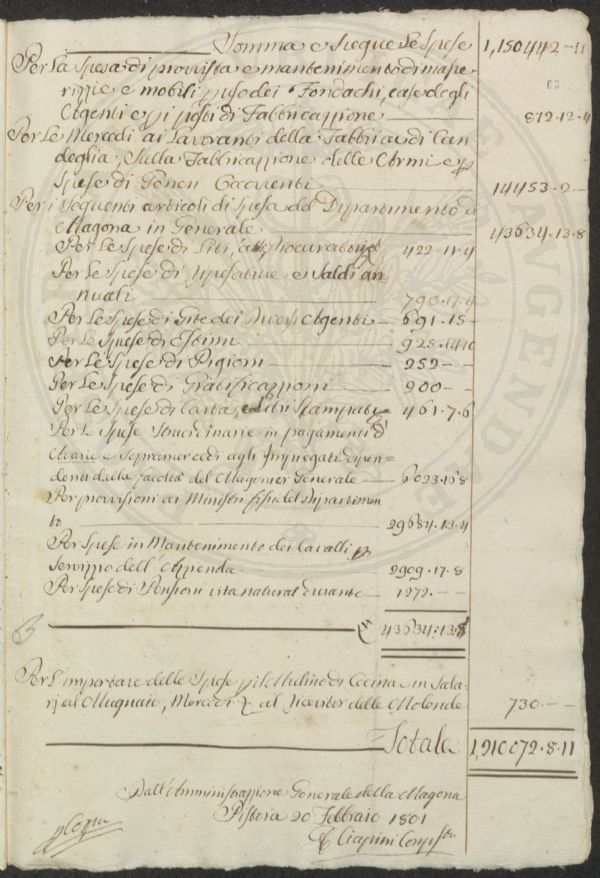 Somma e siegue le Spese 1,150442 - 11
Per la spesa di provvista e mantenimento di masse-
rizzie e mobili p uso dei Fondachi, case degli
Agenti e pi posti di Fabbricazzione 872.12.4
63
Per le Mercedi ai Lavoranti della Fabbrica di Can
deglia, sulla Fabbricazzione delle Armi e p
spese di Generi 14453.2 -
Per i seguenti articoli di spesa del Dipartimento di
Magona in Generale 43634.13.8
Per le Spese di Liti, atti, Procuratori 422.11.4
Per le spese di e saldi an
nuali 790.17.4
Per le spese di Gite dei Agenti 691.15 -
Per le spese di 925.14.10
Per le spese di Pigioni 252 - -
Per le spese di Gratificazzioni 200 - -
Per le Spese di carta, e Libri Stampati 461.7.6
Per le Spese Straordinarie in pagamenti d'
Avarie e Sopramercedi agli Impiegati dipen-
denti dalla facoltà del Magonier Generale 6023.15.8
Per provvisioni ai Ministri fissi del Dipartimen
to 29684.13.4
Per Spese in Mantenimento dei Cavalli p
servizio dell'Azienda 2909.17.8
Per spese di Pensioni vita natural durante 1272 - -
43634.13.8
Per l'importare delle Spese pil Mulino di Cecina in Sala-
rj al Mugnaio, Mercedi & al Ricevitor delle Molende 730 - -
Totale 1,210072.8.11
Dall'Amministrazzione Generale della Magona
Pistoia 20 Febbraio 1801
Ciapini Comp.
p Copia